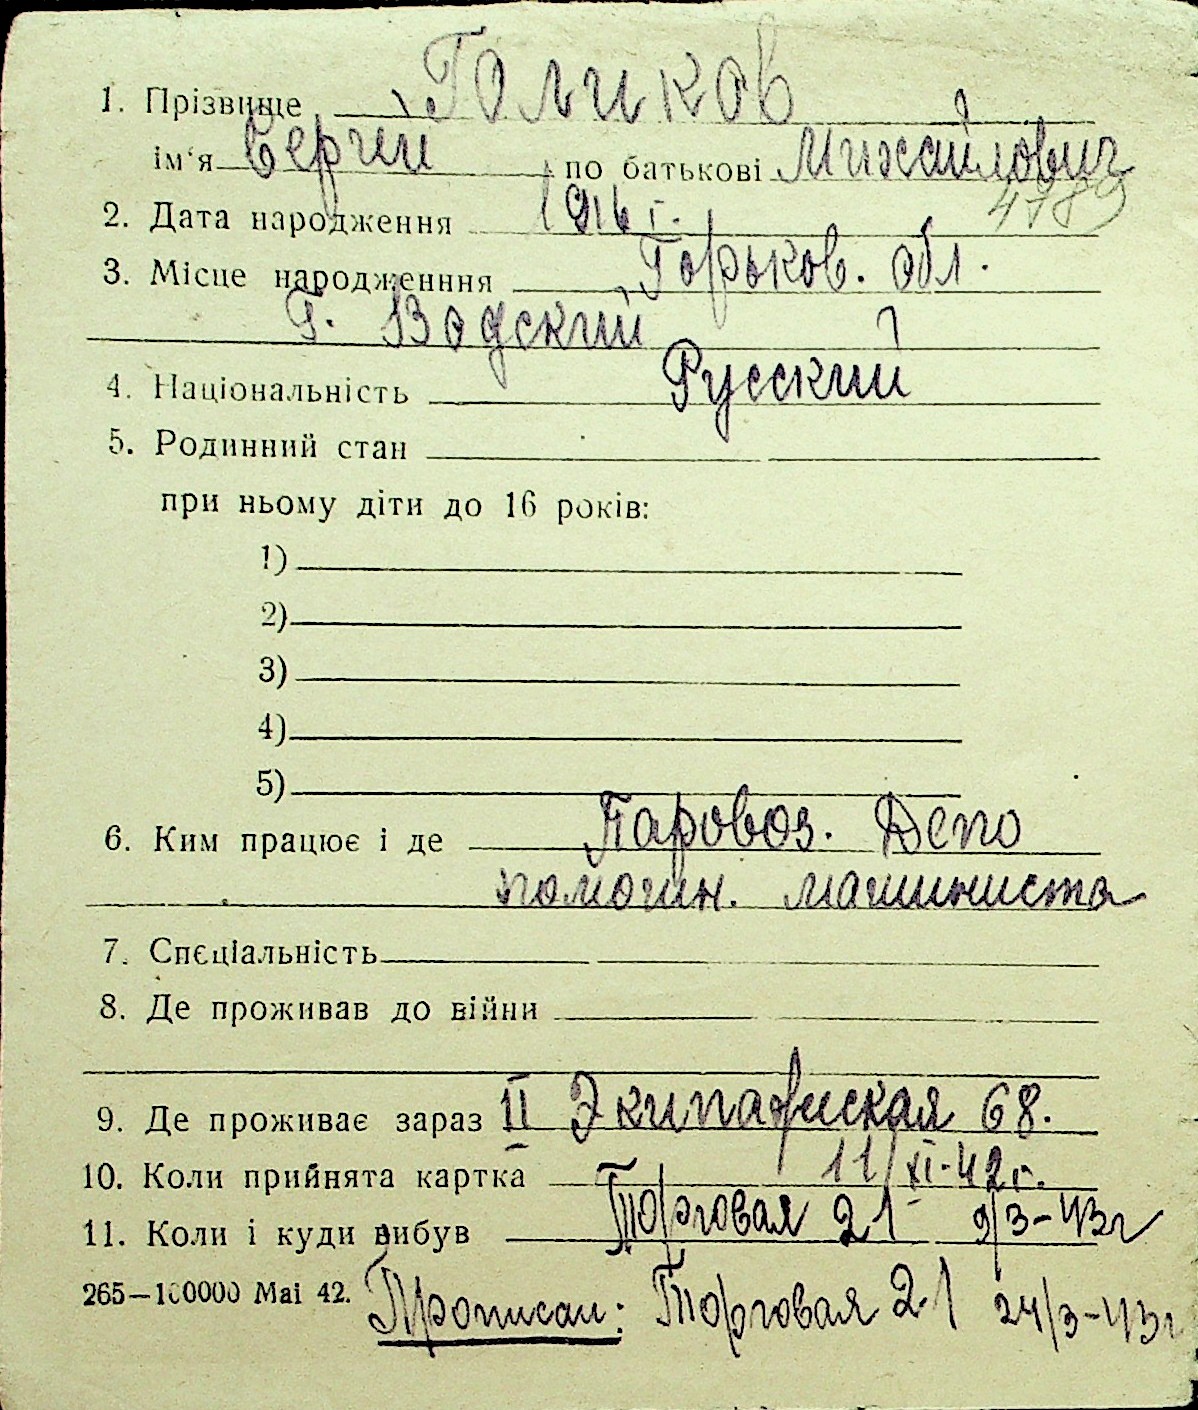 1. Прізвище Голиков
ім'я Сергий по батькові Михайлович
4789
2. Дата народження 1916 г.
3. Місце народженння Горьков. обл.
Г. Водский
4. Національність Русский
5. Родинний стан
при ньому діти до 16 років:
1)
2)
3)
4)
5)
6. Ким працює і де Паровоз. Депо
помошн. машиниста
7. Спеціальність
8. Де проживав до війни
9. Де проживає зараз II Экипажиская 68.
10. Коли прийнята картка 11/XI-42г.
11. Коли і куди вибув Торговая 21 9/3-43г
265—100000 Mai 42. Прописан: Торговая 21 24/3-43г